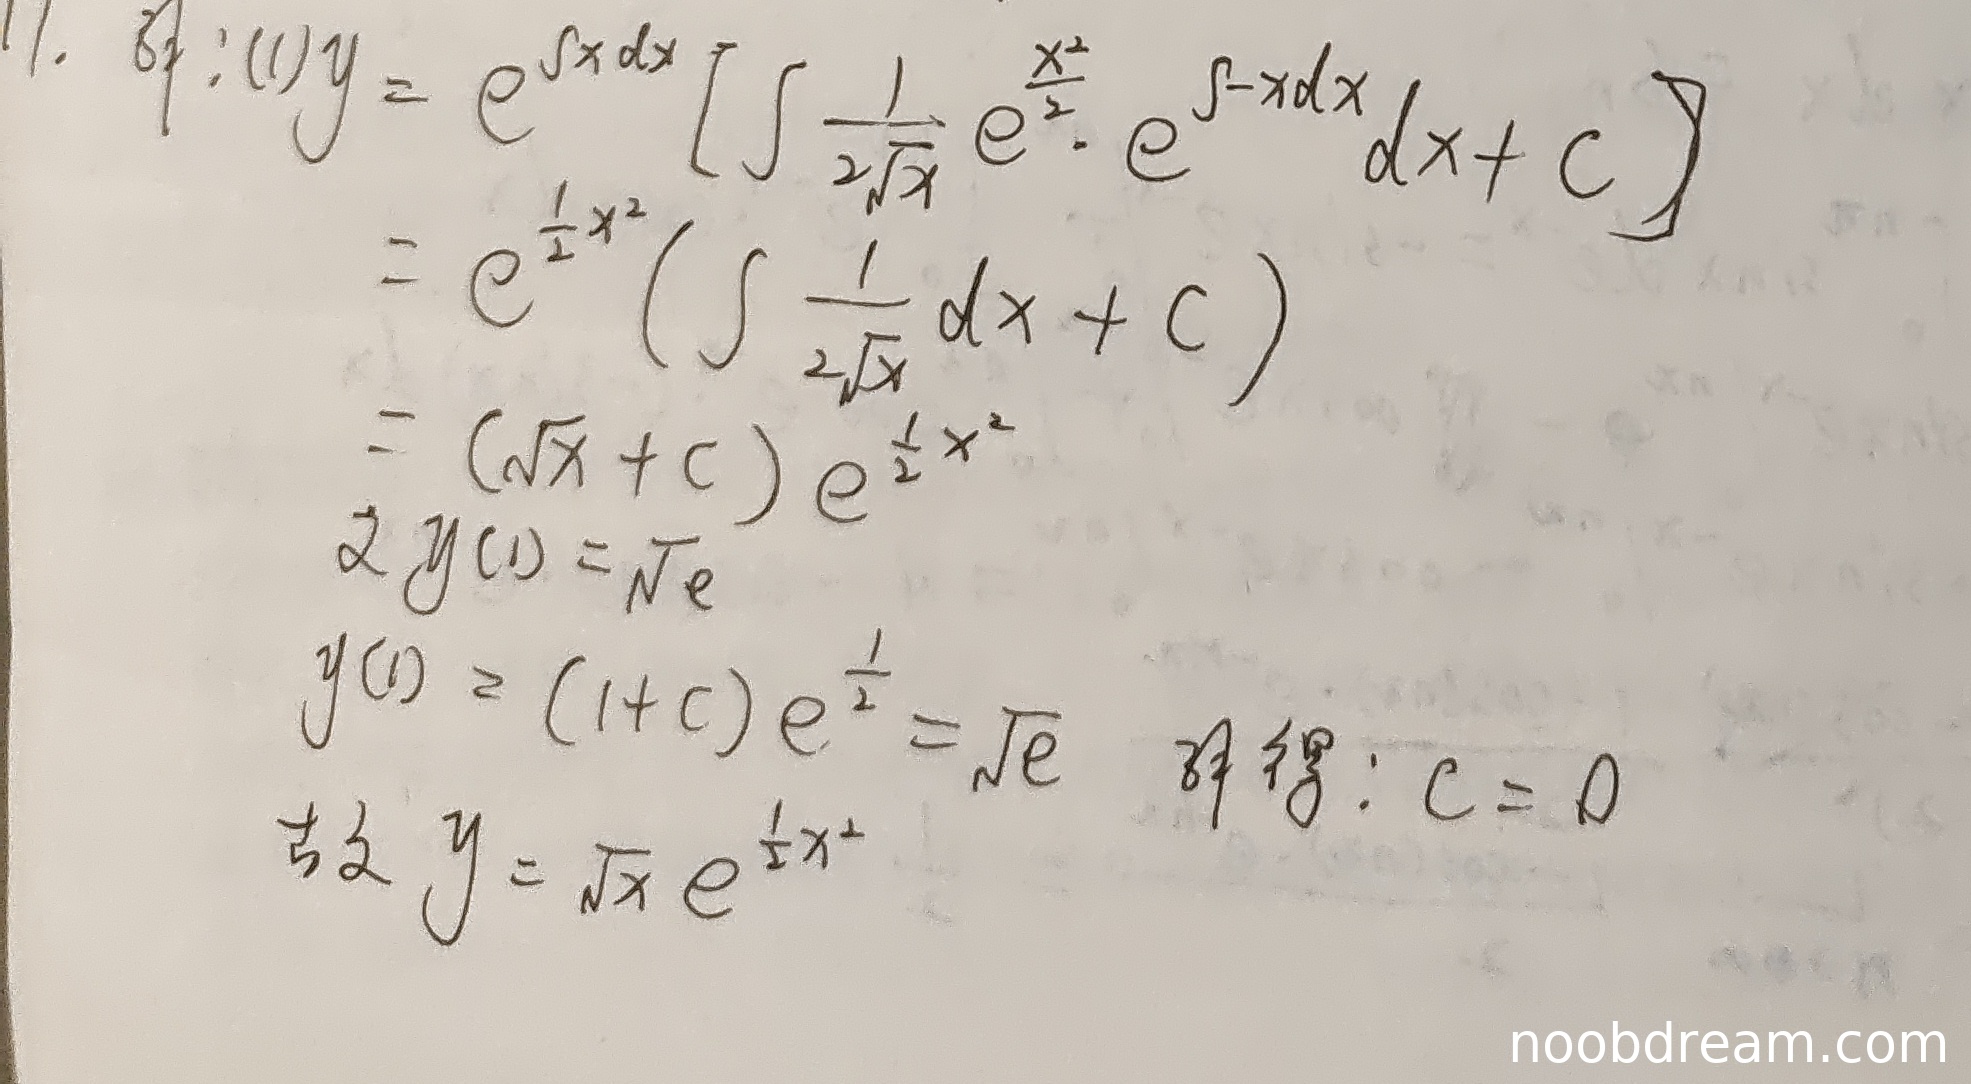 17. 解:(1) y = e^{∫x dx} [∫ \frac{1}{2√x} e^{\frac{x²}{2}} · e^{∫-xdx} dx + C]
= e^{\frac{1}{2}x²} (∫ \frac{1}{2√x} dx + C)
= (√x + C) e^{\frac{1}{2}x²}
又 y(1) = √e
y(1) = (1+C) e^{\frac{1}{2}} = √e 解得: C = 0
故 y = √x e^{\frac{1}{2}x²}
noobdream.com